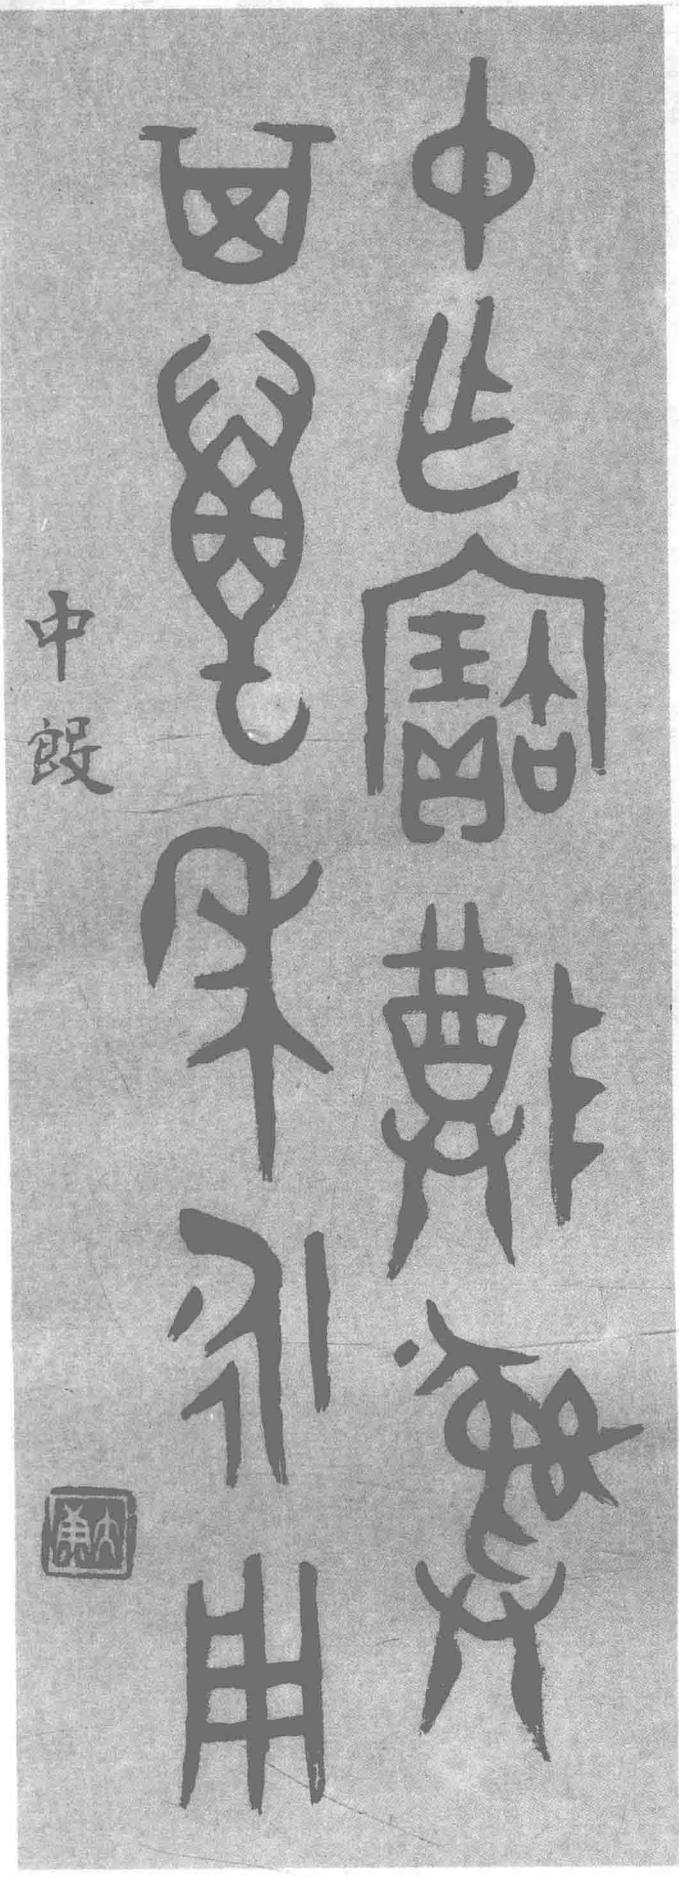 中乍寶尊彝
其萬年永用
中𣪘